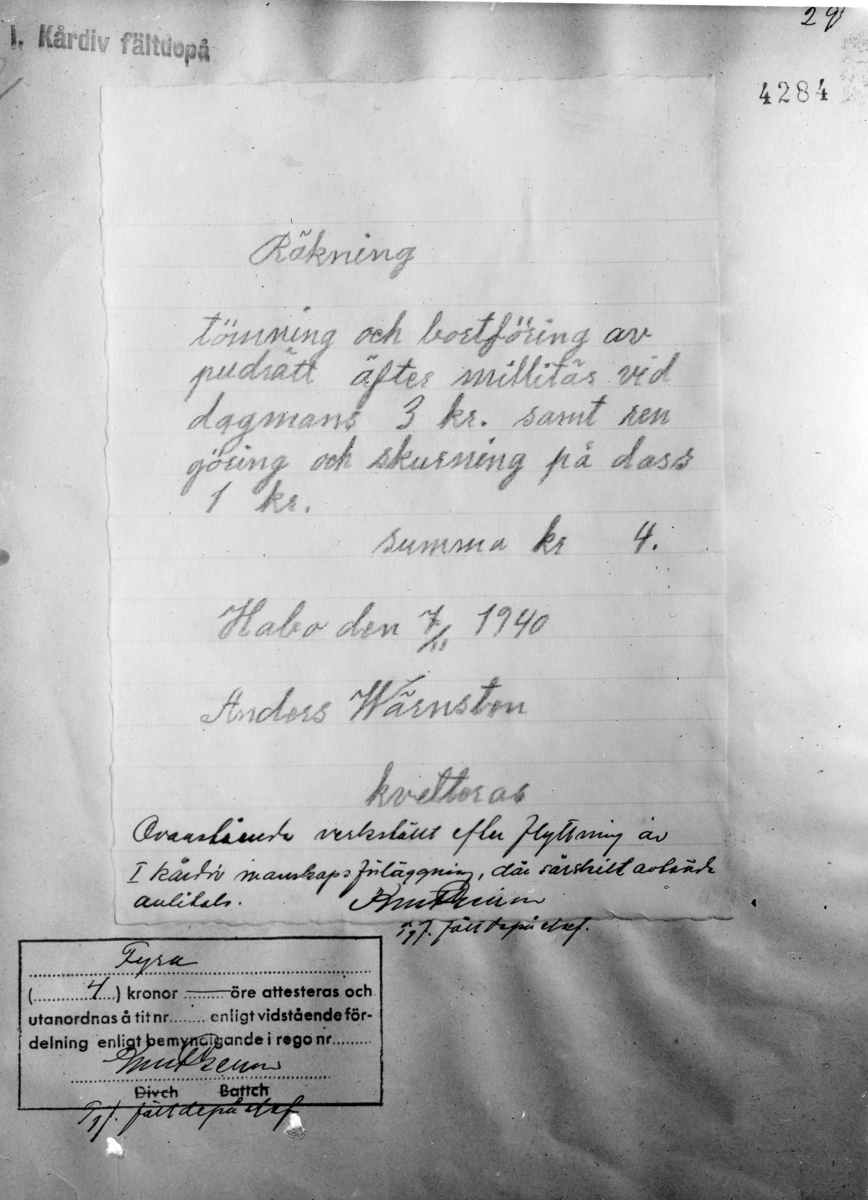 29
I. Kårdiv fältdepå
4284
Räkning
tömning och bortföring av
pudrätt äfter millitär vid
dagmans 3 kr. samt ren
göring och skurning på dass
1 kr.
summa kr 4.
Habo den 7/11 1940
Anders Wärnsten
kvitteras
Ovanstående verkställt efter flyttning av
I kårdiv manskapsförläggning, där särskilt avträde
anlitats.
Tjf. fältdepåchef.
Fyra
(4) kronor öre attesteras och
utanordnas å tit nr enligt vidstående för-
delning enligt bemyndigande i rego nr
Divch Battch
Tjf. fältdepåchef